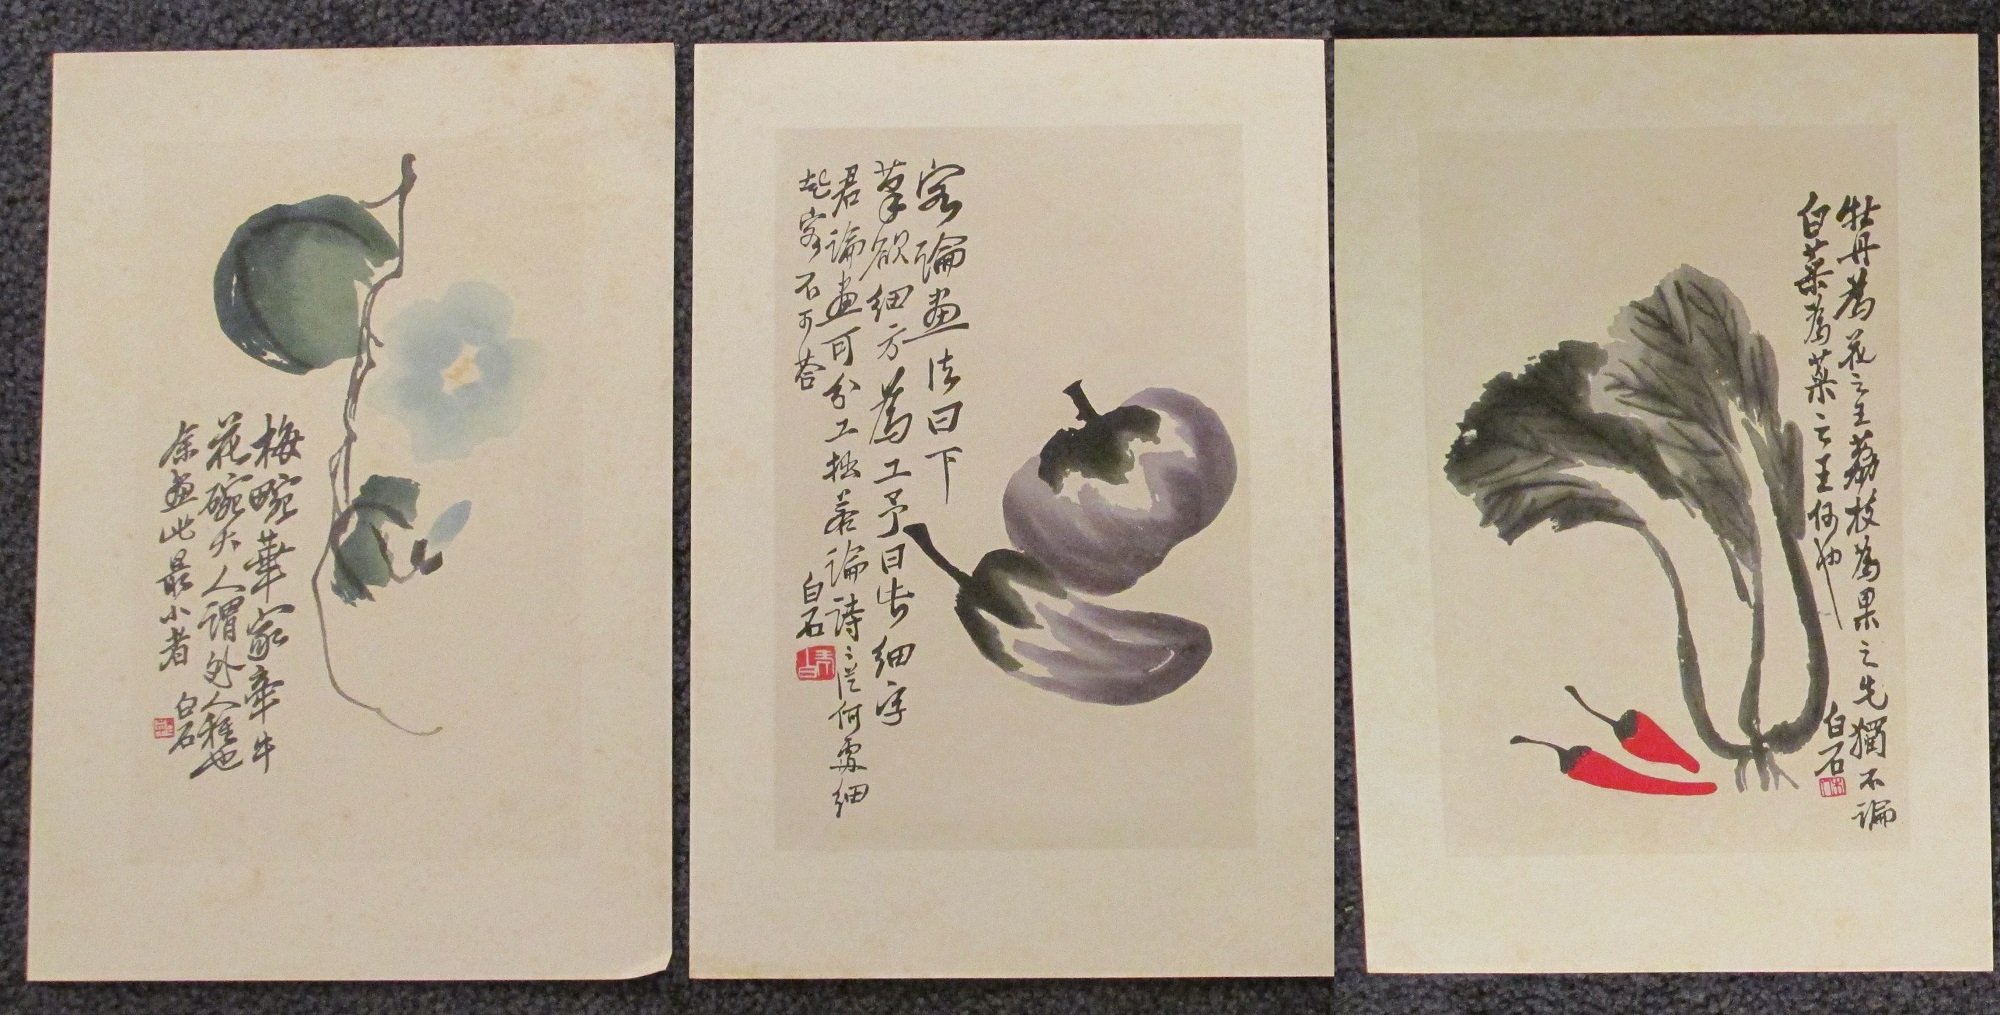 梅畹華家牽牛
花碗大人謂外人種也
余畫此最小者
白石
客論畫法曰下
筆欲細方為工予曰
君論畫可分工拙若論詩
何處細
起客不可答
白石
牡丹為花之王荔枝為果之先獨不論
白菜為菜之王何也
白石